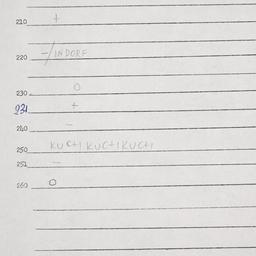 210 +
220 -/INDORF
230 O
231 +
240 -
250 KUCHIKUCHIKUCHI
252 -
260 O